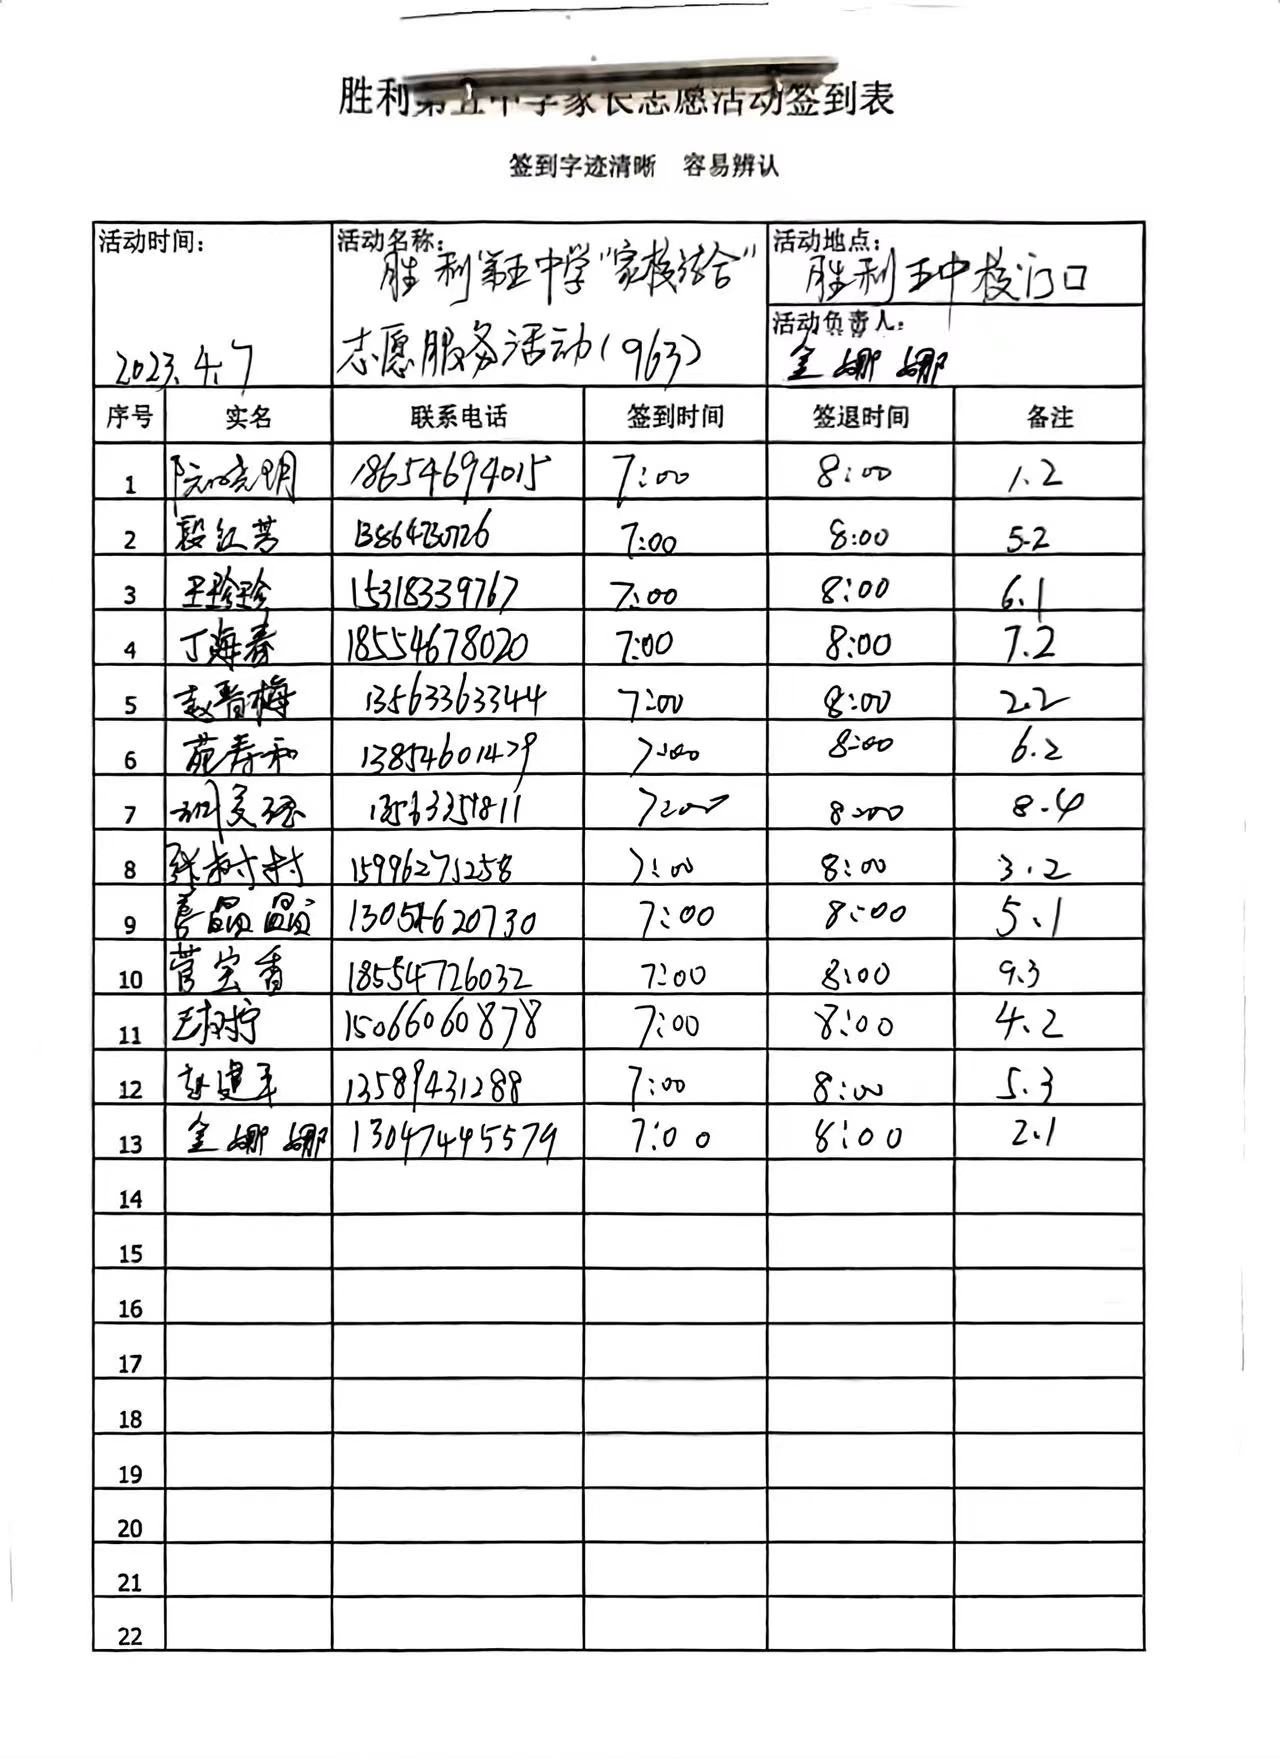 胜利第五中学家长志愿活动签到表
签到字迹清晰 容易辨认
活动时间: 2023.4.7
活动名称: 胜利第五中学“家校结合”
志愿服务活动(963)
活动地点: 胜利五中校门口
活动负责人: 金娜娜
序号 实名 联系电话 签到时间 签退时间 备注
1 阮晓明 18654694015 7:00 8:00 1.2
2 段红芳 7:00 8:00 5.2
3 王珍珍 15318339767 7:00 8:00 6.1
4 丁海春 18554678020 7:00 8:00 7.2
5 赵春梅 13563363344 7:00 8:00 2.2
6 苑寿和 13854601479 7:00 8:00 6.2
7 7:00 8:00 8.4
8 张树村 15996271258 7:00 8:00 3.2
9 晶晶 13054620730 7:00 8:00 5.1
10 菅宝香 18554726032 7:00 8:00 9.3
11 15066060878 7:00 8:00 4.2
12 赵建军 13589431288 7:00 8:00 5.3
13 金娜娜 13047445579 7:00 8:00 2.1
14
15
16
17
18
19
20
21
22